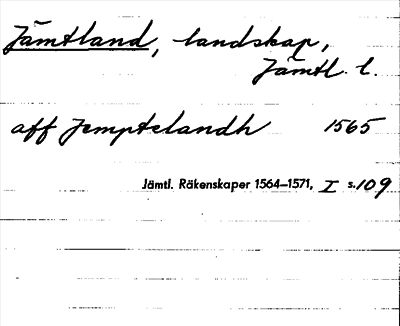 Jämtland, landskap,
Jämtl. l.
aff Jemptelandh 1565
Jämtl. Räkenskaper 1564–1571, I s. 109